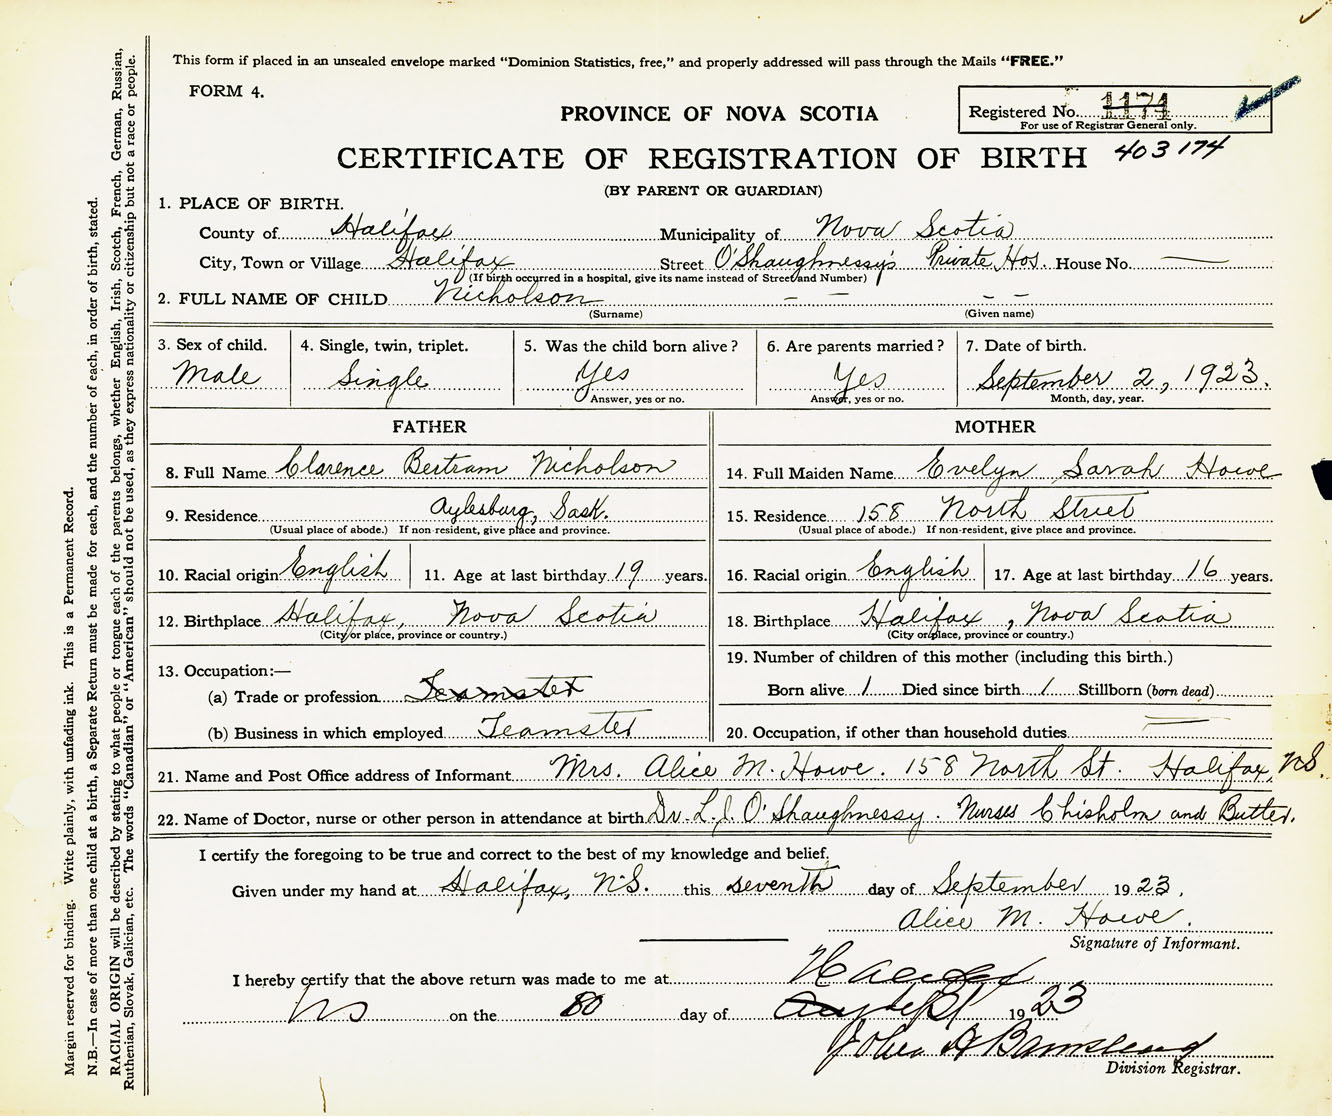 This form if placed in an unsealed envelope marked “Dominion Statistics, free,” and properly addressed will pass through the Mails “FREE.”
FORM 4.
PROVINCE OF NOVA SCOTIA
Registered No. 1171
For use of Registrar General only.
CERTIFICATE OF REGISTRATION OF BIRTH 403174
(BY PARENT OR GUARDIAN)
1. PLACE OF BIRTH.
County of Halifax Municipality of Nova Scotia
City, Town or Village Halifax Street O'Shaughnessy's Private Hos. House No. —
(If birth occurred in a hospital, give its name instead of Street and Number)
2. FULL NAME OF CHILD Nicholson – – – –
(Surname) (Given name)
3. Sex of child. 4. Single, twin, triplet. 5. Was the child born alive? 6. Are parents married? 7. Date of birth.
Male Single Yes Yes September 2, 1923.
Answer, yes or no. Answer, yes or no. Month, day, year.
FATHER MOTHER
8. Full Name Clarence Bertram Nicholson 14. Full Maiden Name Evelyn Sarah Howe
9. Residence Aylesburg, Sask. 15. Residence 158 North Street
(Usual place of abode.) If non-resident, give place and province. (Usual place of abode.) If non-resident, give place and province.
10. Racial origin English 11. Age at last birthday 19 years. 16. Racial origin English 17. Age at last birthday 16 years.
12. Birthplace Halifax, Nova Scotia 18. Birthplace Halifax, Nova Scotia
(City or place, province or country.) (City or place, province or country.)
13. Occupation:— 19. Number of children of this mother (including this birth.)
(a) Trade or profession Teamster Born alive 1 Died since birth / Stillborn (born dead)
(b) Business in which employed Teamster 20. Occupation, if other than household duties —
21. Name and Post Office address of Informant Mrs. Alice M. Howe. 158 North St. Halifax, N.S.
22. Name of Doctor, nurse or other person in attendance at birth Dr. L. J. O'Shaughnessy. Nurses Chisholm and Butler.
I certify the foregoing to be true and correct to the best of my knowledge and belief.
Given under my hand at Halifax, N.S. this seventh day of September 1923.
Alice M. Howe.
Signature of Informant.
I hereby certify that the above return was made to me at Halifax
NS on the day of Sept 1923
Division Registrar.
Margin reserved for binding. Write plainly, with unfading ink. This is a Permanent Record.
N.B.—In case of more than one child at a birth, a Separate Return must be made for each, and the number of each, in order of birth, stated.
RACIAL ORIGIN will be described by stating to what people or tongue each of the parents belongs, whether English, Irish, Scotch, French, German, Russian,
Ruthenian, Slovak, Galician, etc. The words “Canadian” or “American” should not be used, as they express nationality or citizenship but not a race or people.